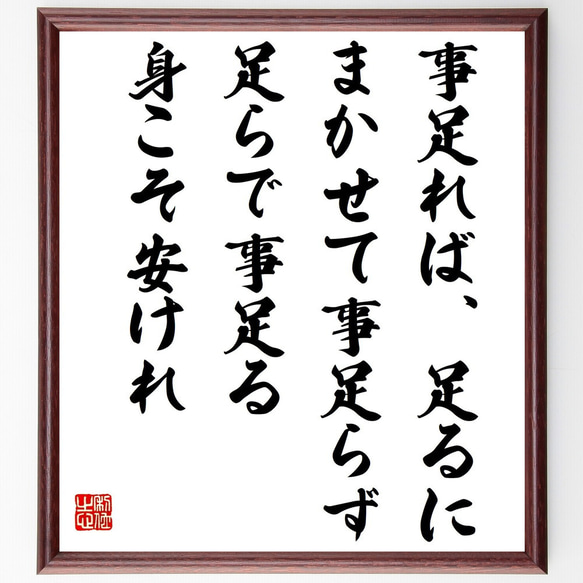 事足れば、足るに
まかせて事足らず
足らで事足る
身こそ安けれ